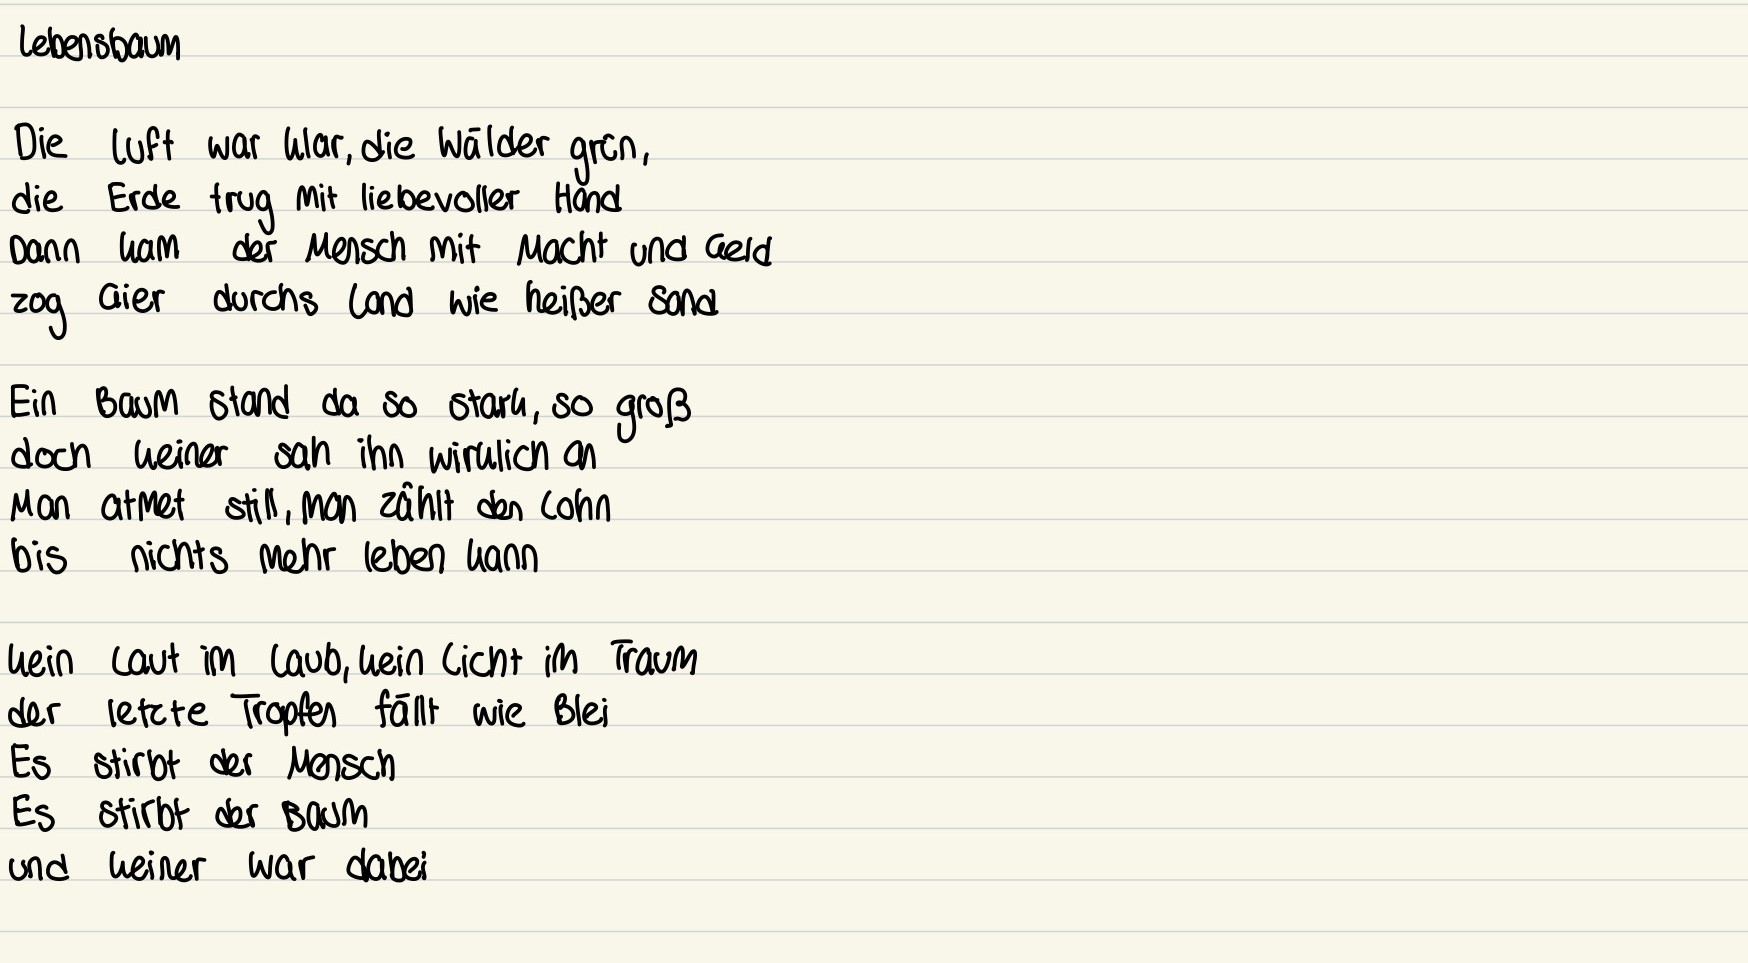 Lebensbaum
Die Luft war klar, die Wälder grün,
die Erde trug mit liebevoller Hand
Dann kam der Mensch mit Macht und Geld
zog Gier durchs Land wie heißer Sand
Ein Baum stand da so stark, so groß
doch keiner sah ihn wirklich an
Man atmet still, man zählt den Lohn
bis nichts mehr leben kann
kein Laut im Laub, kein Licht im Traum
der letzte Tropfen fällt wie Blei
Es stirbt der Mensch
Es stirbt der Baum
und keiner war dabei